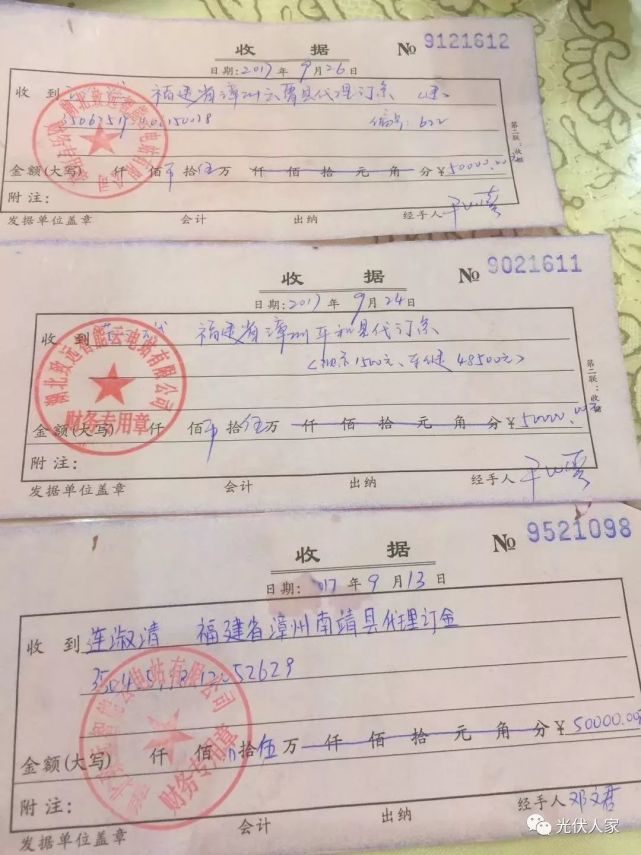 收 据 № 9121612
日期:2017年 9月26日
收 到 福建省漳州云霄县代理订金
编号: 622
金额(大写) 仟 佰 拾伍万 仟 佰 拾 元 角 分¥50000.00
附注:
发据单位盖章 会计 出纳 经手人
第二联:收据
湖北致远智能云电站有限公司
财务专用章
收 据 № 9021611
日期:2017年 9月24日
收 到 福建省漳州平和县代订金
48500元>
金额(大写) 仟 佰 拾伍万 仟 佰 拾 元 角 分¥50000.00
附注:
发据单位盖章 会计 出纳 经手人
第二联:收据
湖北致远智能云电站有限公司
财务专用章
收 据 № 9521098
日期: 017年 9月13日
收 到 连淑清 福建省漳州南靖县代理订金
金额(大写) 仟 佰 拾伍万 仟 佰 拾 元 角 分¥50000.00
附注:
发据单位盖章 会计 出纳 经手人 邓文君
湖北致远智能云电站有限公司
财务专用章
光伏人家